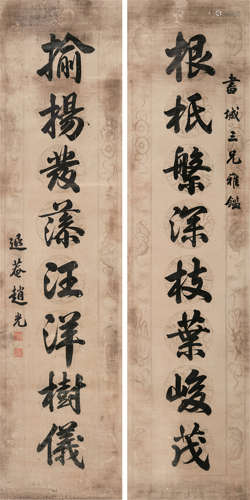 書城三兄雅鑑
根柢槃深枝葉峻茂
揄揚發藻汪洋樹儀
退菴趙光